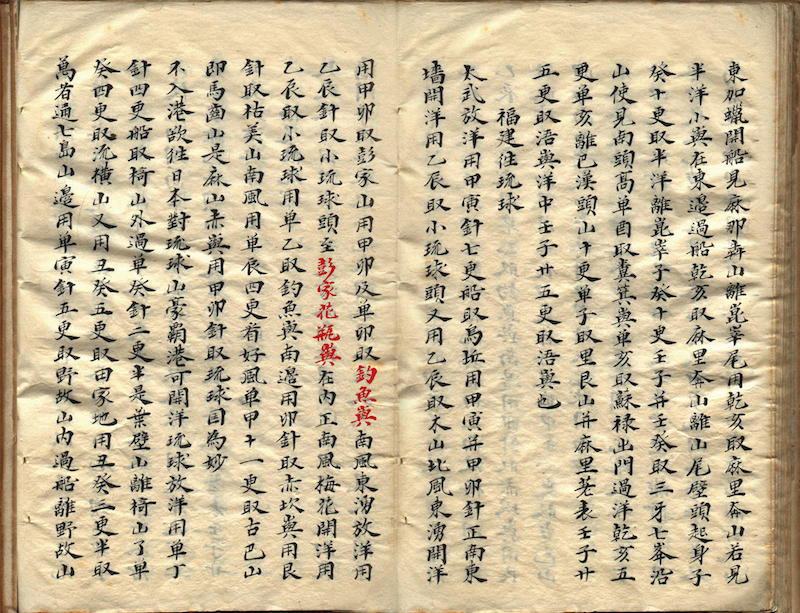 東加蠟開船見麻那犇山離崑崙尾用乾亥取麻里奔山若見
半洋小㠘在東邊過船乾亥取麻里奔山離山尾壁頭起身子
癸十更取半洋離崑崙子癸十更壬子并壬癸取三牙七峯沿
山使見南頭高單酉取糞箕㠘單亥取蘇祿出門過洋乾亥五
更單亥離巴漢頭山十更單子取里艮山并麻里荖表壬子廿
五更取浯㠘洋中壬子廿五更取浯㠘也
福建往琉球
太武放洋用甲寅針七更船取烏坵用甲寅并甲卯針正南東
墻開洋用乙辰取小琉球頭又用乙辰取木山北風東湧開洋
用甲卯取彭家山用甲卯及單卯取釣魚㠘南風東湧放洋用
乙辰針取小琉球頭至彭家花瓶㠘在內正南風梅花開洋用
乙辰取小琉球用單乙取釣魚㠘南邊用卯針取赤坎㠘用艮
針取枯美山南風用單辰四更看好風單甲十一更取古巴山
即馬齒山是麻山赤㠘用甲卯針取琉球国為妙
不入港欲往日本對琉球山豪霸港可開洋琉球放洋用單丁
針四更船取椅山外過單癸針二更半是葉壁山離椅山了單
癸四更取流橫山又用丑癸五更取田家地用丑癸三更半取
萬者通七島山邊用單寅針五更取野故山內過船離野故山